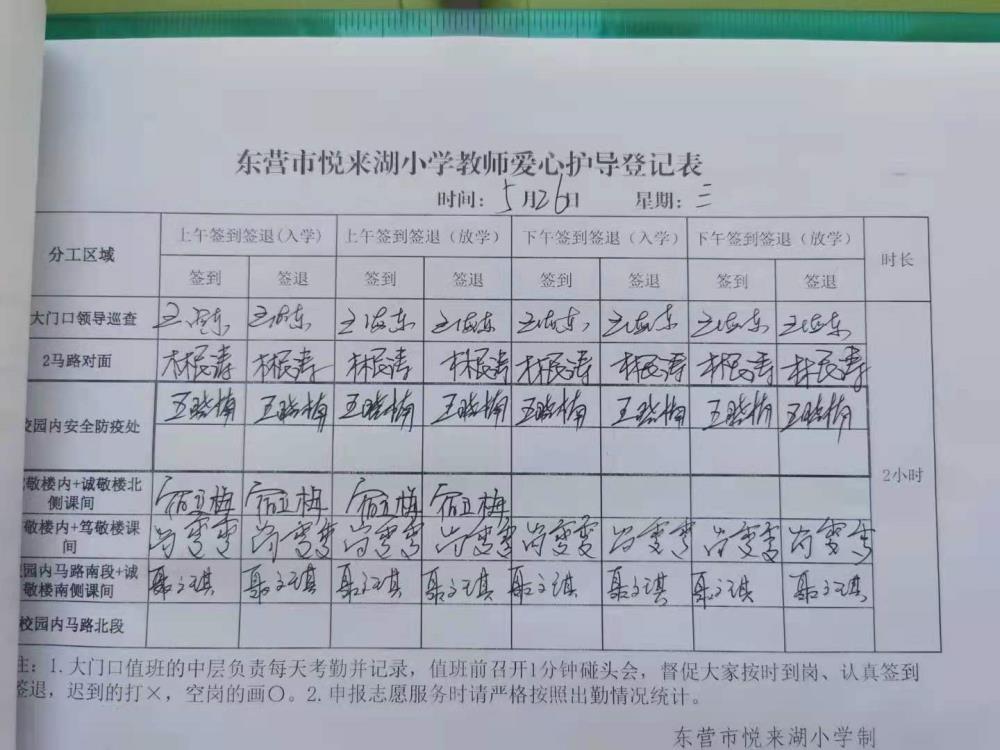 东营市悦来湖小学教师爱心护导登记表
时间：5月26日 星期：三
分工区域 上午签到签退(入学) 上午签到签退（放学） 下午签到签退（入学） 下午签到签退（放学） 时长
签到 签退 签到 签退 签到 签退 签到 签退
大门口领导巡查 王海东 王海东 王海东 王海东 王海东 王海东 王海东 王海东
2马路对面 林民涛 林民涛 林民涛 林民涛 林民涛 林民涛 林民涛 林民涛
校园内安全防疫处 王晓楠 王晓楠 王晓楠 王晓楠 王晓楠 王晓楠 王晓楠 王晓楠
2小时
敬楼内+诚敬楼北 宿卫梅 宿卫梅 宿卫梅 宿卫梅
侧课间
敬楼内+笃敬楼课 尚雯雯 尚雯雯 尚雯雯 尚雯雯 尚雯雯 尚雯雯 尚雯雯 尚雯雯
间
园内马路南段+诚 聂文琪 聂文琪 聂文琪 聂文琪 聂文琪 聂文琪 聂文琪 聂文琪
敬楼南侧课间
校园内马路北段
注：1.大门口值班的中层负责每天考勤并记录，值班前召开1分钟碰头会，督促大家按时到岗、认真签到
签退，迟到的打×，空岗的画〇。2.申报志愿服务时请严格按照出勤情况统计。
东营市悦来湖小学制